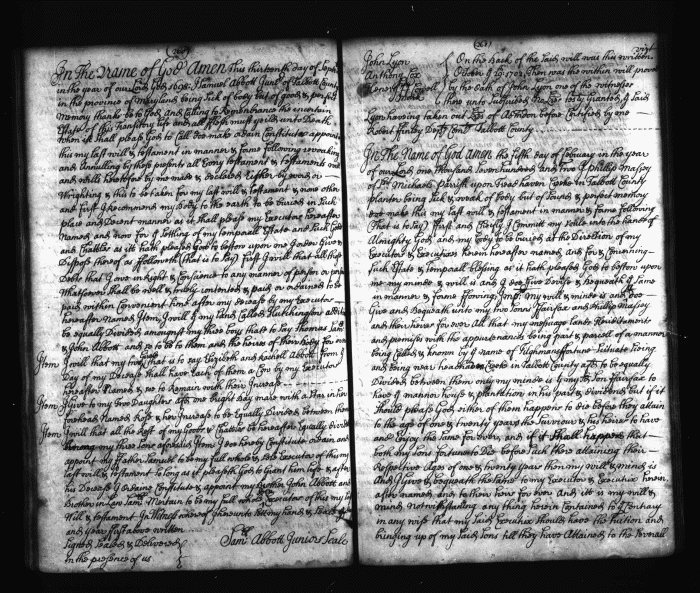 (260)
In The Name of God Amen This thirteenth day of Sept
in the year of our Lord God 1698: I Samuel Abbott Junr of Talbott County
in the province of Maryland being Sick of body but of good & perfect
Memory thanks be to God and Calling to Remembrance the uncertain
Estate of this transitory life and all flesh must yeild unto Death
when it shall please God to Call doe make ordain Constitute appoint
this my last will & testament in manner & forme following revoaking
and Annulling by these presents all & every testament & testaments
and wills heretofore by me made & declared Either by word or
Wrighting & this to be taken for my last will & testament & none other
and first I recommend my body to the earth to be buried in Such
place and Decent manner as it shall please my Executors hereafter
Named and now for Setling of my temporall Estate and Such Goods
and Chattles as it hath pleased God to bestow upon me I order Give &
Dispose thereof as followeth (that is to Say) first I will that all those
Debts that I owe in Right & Consience to any manner of person or persons
Whatsoever Shall be well & truly contented & paid or ordained to be
paid within Convenient time after my decease by my Executor
hereafter Named Item I will that my land Called Huckington
be equally Divided amoungst my three boys that is to Say Thomas Sam
& John Abbott and so to be to them and the heires of their body for
Item I will that my two that is to say Elizabeth and Rachell Abbott from
Day of my Decease shall have Each of them a Cow by my Executor
hereafter Named & soe to Remain with their Increase
Item I give to my two Daughters afd one bright bay mare with a Star in her
forehead Named Rose & her Increase to be Equally Divided between them
Item I will that all the Rest of my Goods & Chattles be hereafter Equally divided
Among my three Sons aforesaid Item I doe hereby Constitute ordain and
appoint my Father Samuell to be my full whole & sole Executor of this my
last will & testament so long as it pleaseth God to Grant him life & after
his Decease I ordaine Constitute & appoint my Brother John Abbott and
Brother in Law Saml Martain to be my full whole Executor of this my last
Will & testament In Witness whereof I hereunto Sett my hand & Seale
and year first above written
Signed Sealed & Delivered
In the presence of us
Saml Abbott Junior Seale
(261)
John Lyon
Anthony Fox
On the Back of the Said will was thus written
October 1703 then was the within will proved
by the Oath of John Lyon one of the witnesses
there unto
Lyon having taken out of Maddon before Certified by me
Robert Finley Depty Comy Talbott County
In The Name of God Amen the fifth day of February in the year
of our Lord one thousand Seven hundred and two I Phillip Massey
of St Michaels parish upon Tredhaven Creeke in Talbott County
planter being Sick & weak of body but of Sound & perfect memory
doe make this my last will & testament in manner & forme following
(That is to Say) First and Chiefly I Committ my Soule into the hands of
Almighty God and my body to be buried at the Direction of my
Executor & Executors herein hereafter named and for & Concerning
Such Estate & temporall blesing as it hath pleased God to bestow upon
me my minde & will is and I doe Give Devise & bequeath the Same
in manner & forme following Impr my will & minde is and doe
Give and Bequeath unto my two Sonns Fairfax and Phillip Massey
and their heires for ever All that my mesuage lands
and premises with the appurtenances being part & parcell of a mannor
being Called & known by the name of Tilghmans fortune Situate Lieing
and being near head of Creeke in Talbott County afsd to be equally
Divided between them only my minde is that my Son Fairfax to
have the mannor house & plantation in his part & dividend but if it
Should please God either of them happen to die before they attain
to the age of one & twenty years the Surviver & his heires to have
and Enjoy the Same for ever, and if it Shall happen that
both my Sons fortune to Die before Such there attaining their
Respective Ages of one & twenty years then my will & minde is
And I give & bequeath the Same to my Executor & Executrix herein
after named and to their heirs for ever And its is my will &
minde notwithstanding any thing herein Contained to the Contrary
in any wise that my Said Executrix Should have the tuition and
bringing up of my Said Sons till they have Attained to the Severall